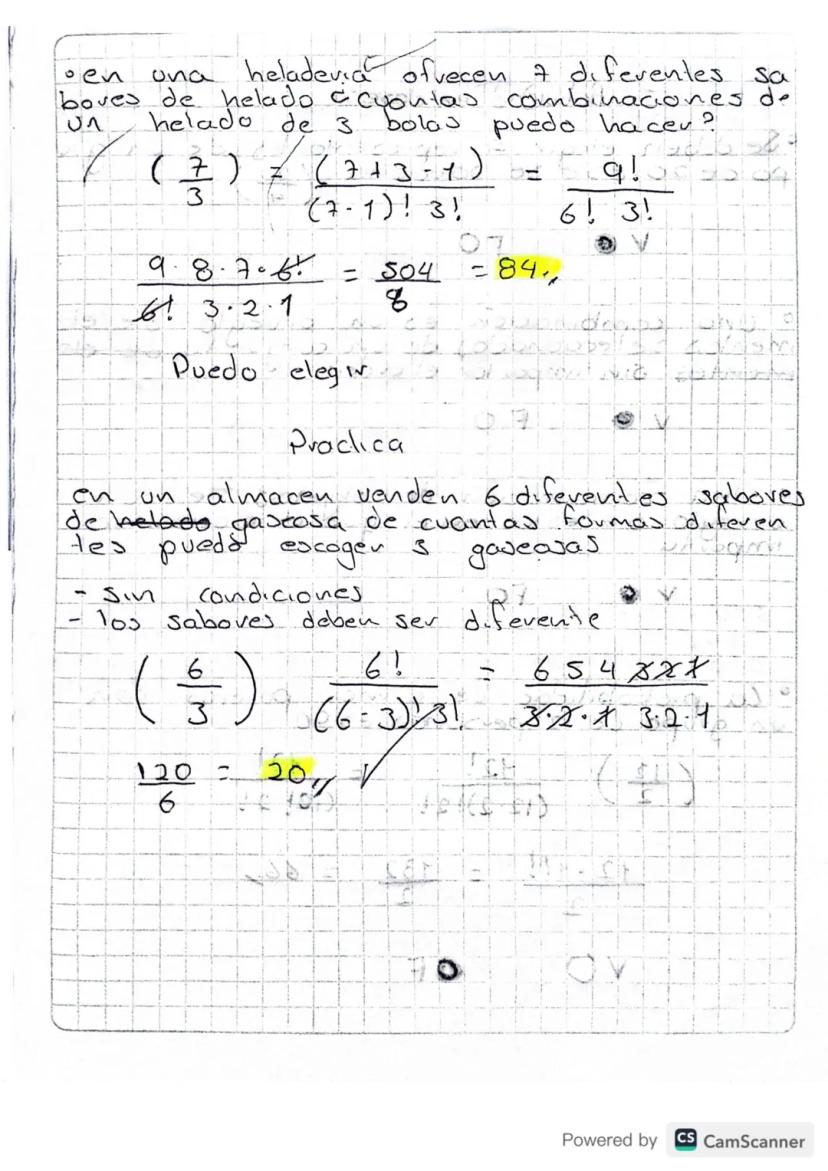 • en una heladería ofrecen 7 diferentes sa
bores de helado ¿cuontas combinaciones de
un helado de 3 bolas puedo hacer?
( 7/3 ) = (7+3-1) / (7-1)! 3! = 9! / 6! 3!
9·8·7·6! / 6! 3·2·1 = 504 / 8 = 84
Puedo elegir
Practica
en un almacen venden 6 diferentes sabores
de helado gaseosa de cuantas formas diferen
tes puedo escoger 3 gaseosas
- sin condiciones
- los sabores deben ser diferente
( 6/3 ) 6! / (6-3)! 3! = 6 5 4 3 2 1 / 3·2·1 3·2·1
120 / 6 = 20
Powered by CS CamScanner